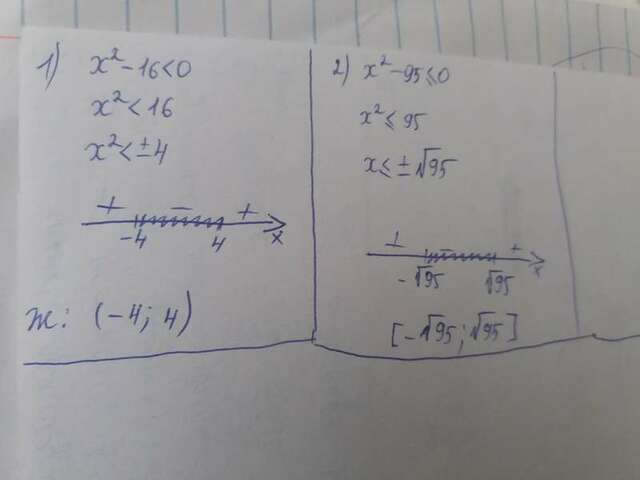 1) x²-16<0
x²<16
x²<±4
+ - +
-4 4 x
Ж: (-4; 4)
2) x²-95≤0
x²≤95
x≤±√95
+ - +
-√95 √95 x
[-√95; √95]